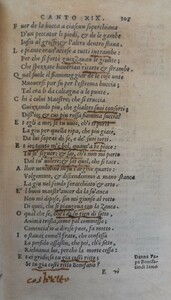 CANTO XIX.
F uor de la bocca a ciascun soperchiava
D'un peccator li piedi, & de le gambe
Infin al grosso; & l'altro dentro stava.
L e piante erano accese a tutti intrambe:
Perche si forte guizzavan le giunte;
Che spezzate haverian ritorte & strambe.
Q ual suole il fiammeggiar de le cose unte
Muoversi pur su per l'estrema buccia;
Tal era lì da calcagni a le punte.
C hi è colui Maestro, che si cruccia
Guizzando più, che gli altri suoi consorti,
Diss'io, & cui più rossa fiamma succia?
E t egli a me; se tu vuoi, ch'i ti porti
La giu per quella ripa, che più giace;
Da lui saprai di se, & de suoi torti.
E t io; tanto m'è bel, quanto a te piace:
Tu se signore; & sai, ch'i non mi parto
Dal tuo volere; & sai quel, che si tace.
A llhor venimmo in su l'argine quarto:
Volgemmo, & discendemmo a mano stanca
La giu nel fondo foracchiato & arto.
E 'l buon maestro anchor de la sua anca
Non mi dipose, sin mi giunse al rotto
Di quei, che si piangeva con la zanca.
O qual che se, che'l di su tien di sotto
Anima trista, come pal, commessa,
Comincia io a dir, se puoi, fa motto.
I o stava, come'l frate, che confessa
Lo perfido assassin, che poi, ch'è fitto,
Richiama lui, perche la morte cessa:
E t ei gridò; se tu gia costi ritto,
Se tu gia costi ritto Bonifatio?